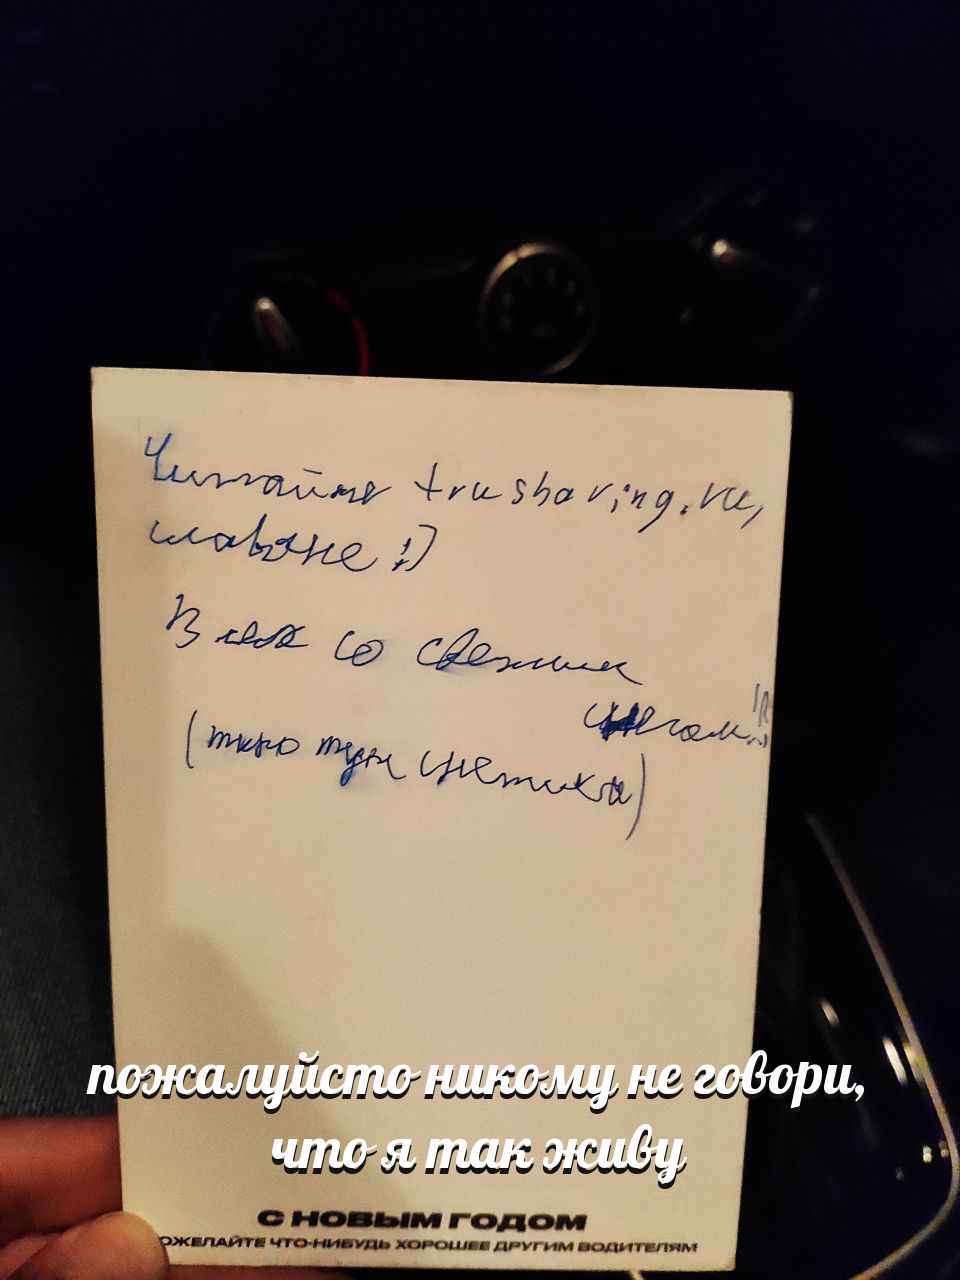 Читайте trusharing.ru,
славяне !)
В лот со свежим
снегом!!
(тко тут снежок)
пожалуйсто никому не говори,
что я так живу
С НОВЫМ ГОДОМ
ПОЖЕЛАЙТЕ ЧТО-НИБУДЬ ХОРОШЕЕ ДРУГИМ ВОДИТЕЛЯМ